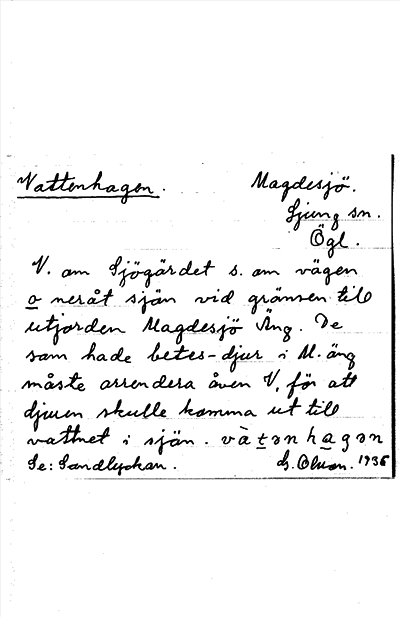 Vattenhagen. Magdesjö.
Ljung sn.
Ögl.
V. om Sjögärdet s. om vägen
o neråt sjön vid gränsen till
utjorden Magdesjö Äng. De
som hade betes-djur i M. äng
måste arrendera även V, för att
djuren skulle komma ut till
vattnet i sjön. vàtənhagən
Se: Sandlyckan. G. Olson. 1936